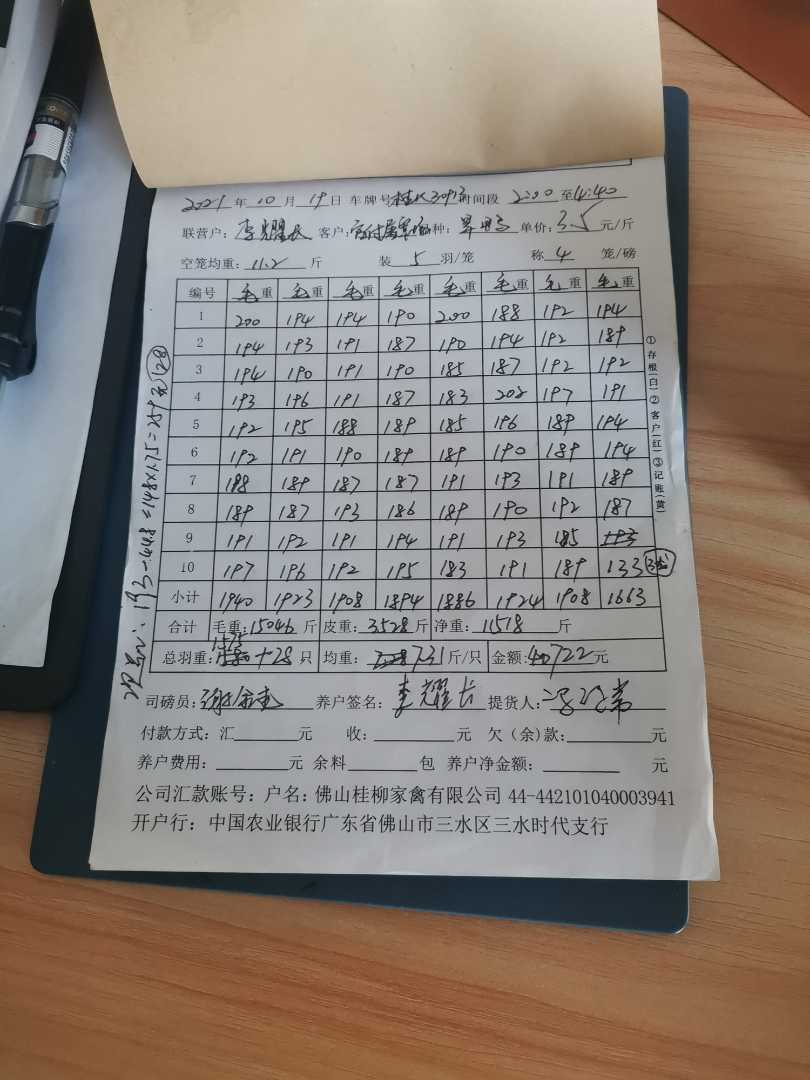 2021年10月19日 车牌号 时间段 2:00至4:40
联营户: 李耀长 客户: 种: 单价: 3.5 元/斤
空笼均重: 11.2 斤 装 5 羽/笼 称 4 笼/磅
编号 毛重 毛重 毛重 毛重 毛重 毛重 毛重 毛重
1 200 194 194 190 200 188 192 194
2 194 193 191 187 190 194 192 189
3 194 190 191 190 185 187 192 192
4 193 196 191 187 183 202 197 191
5 192 195 188 189 185 196 189 194
6 192 191 190 189 189 190 189 194
7 188 189 187 187 191 193 191 189
8 189 187 193 186 189 190 192 187
9 191 192 191 194 191 193 185 193
10 197 196 192 195 183 191 189 133
小计 1940 1923 1908 1894 1886 1924 1908 1663
合计 毛重: 15046 斤 皮重: 3528 斤 净重: 11518 斤
总羽重: 1575 +28 只 均重: 7.31 斤/只 金额: 40722元
司磅员: 养户签名: 李耀长 提货人:
付款方式: 汇 元 收: 元 欠(余)款: 元
养户费用: 元 余料 包 养户净金额: 元
公司汇款账号: 户名: 佛山桂柳家禽有限公司 44-442101040003941
开户行: 中国农业银行广东省佛山市三水区三水时代支行
①存根(白)②客户(红)③记账(黄)
193-44.8=148×1.75=259元 28